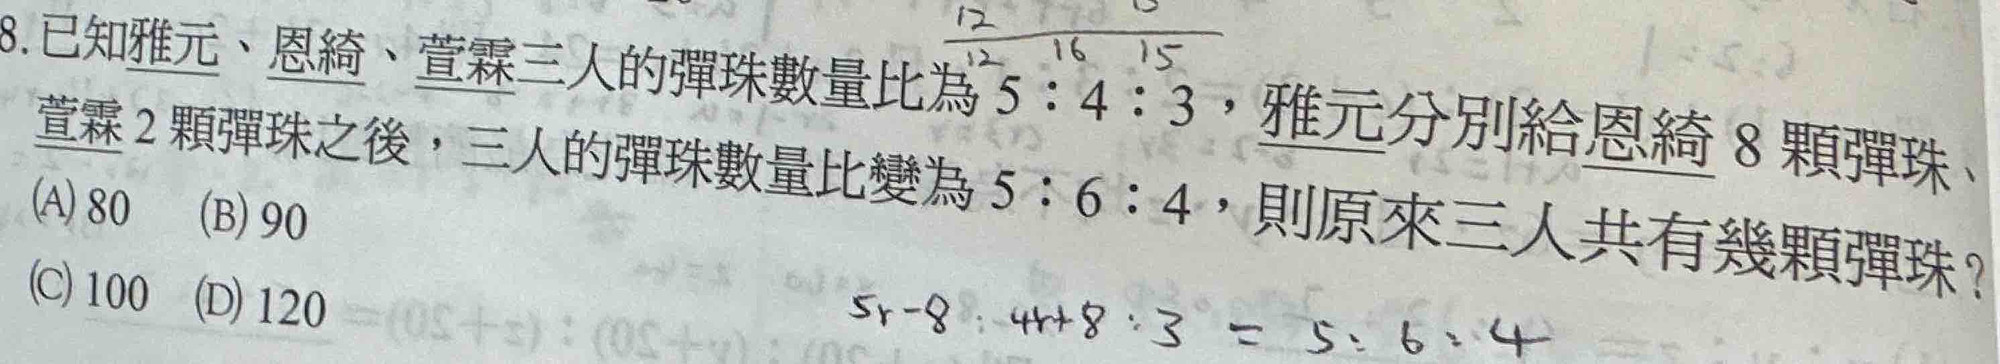 12
12 16 15
8.已知雅元、恩綺、萱霖三人的彈珠數量比為5:4:3,雅元分別給恩綺8顆彈珠、
萱霖2顆彈珠之後,三人的彈珠數量比變為5:6:4,則原來三人共有幾顆彈珠?
(A) 80 (B) 90
(C) 100 (D) 120
5r-8:4r+8:3=5:6:4